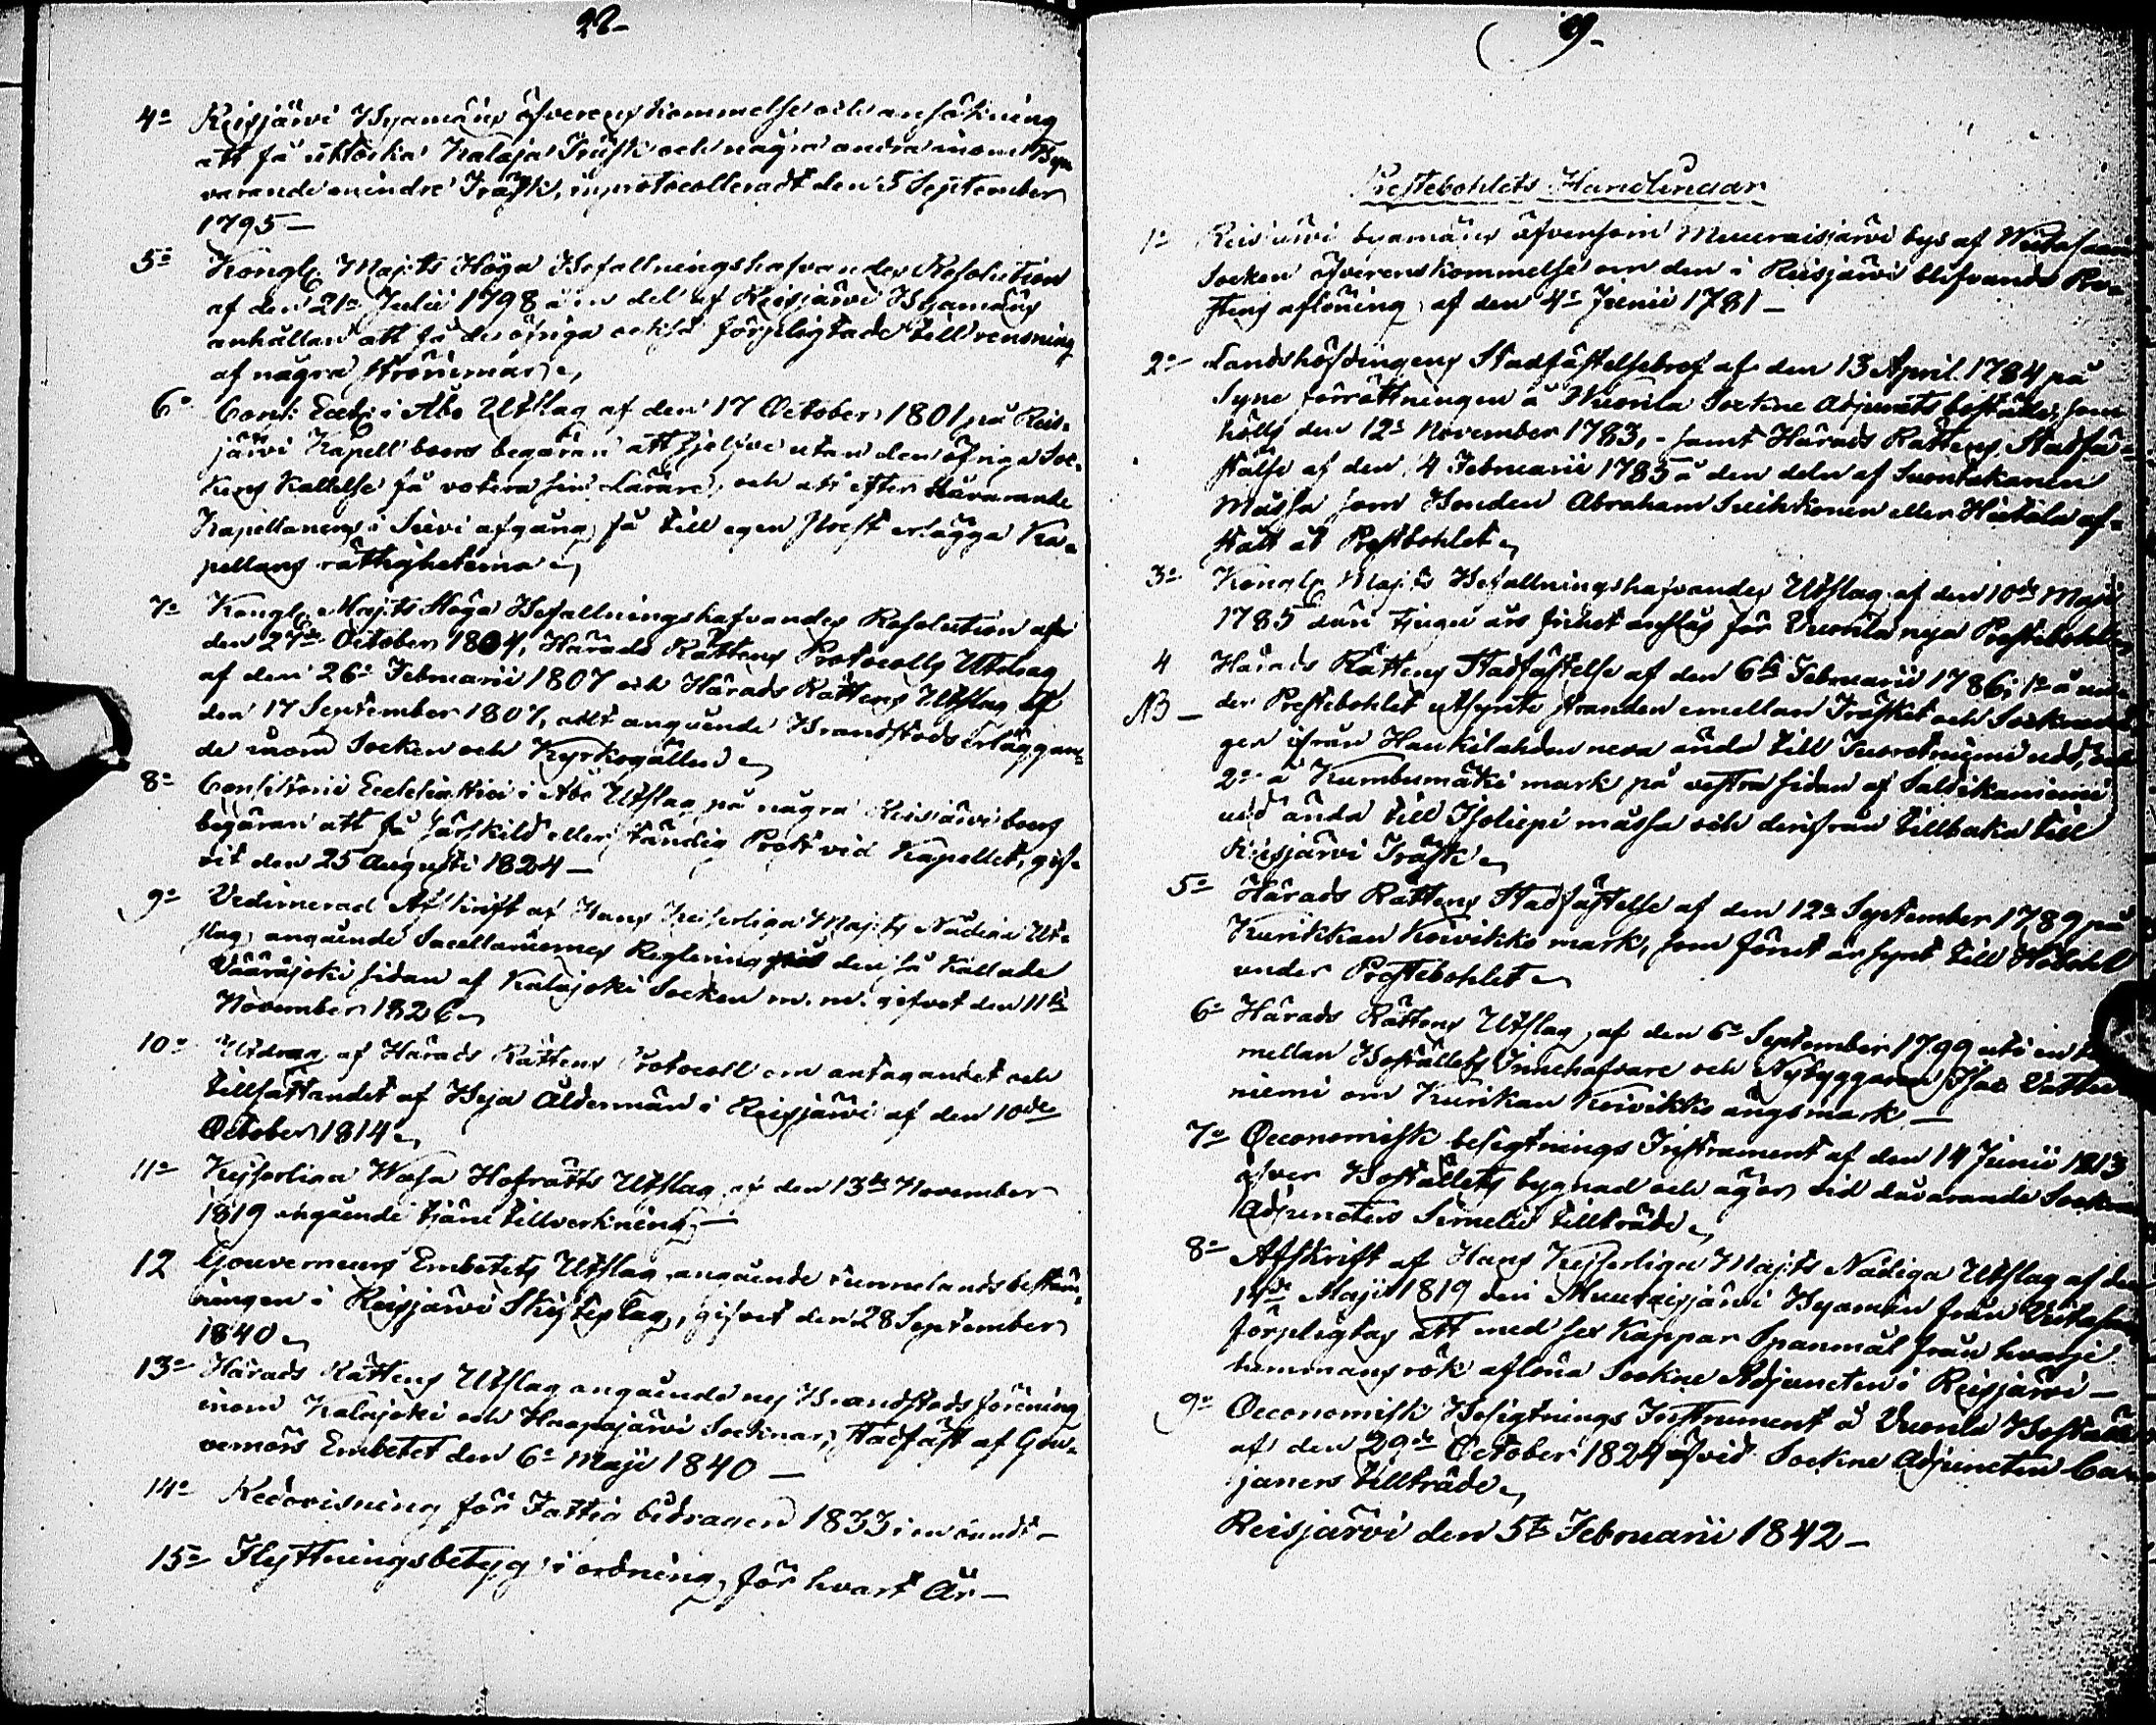 22-
4o Reisjärvi Byamäns öfverenskommelse och ansökning
att få uttorka Kalaja Träsk och några andra inom Byn
varande mindre Träsk, inprotocolleradt den 5 September
1795 —
5o Kongl. Maj:ts Höga Befallningshafvandes Resolution
af den 21a Julii 1798 å en del af Reisjärvi Byamäns
anhållan att få de öfriga också förpligtade till rensning
af några strömmar
6o Cons: Eccl: i Åbo Utslag af den 17 October 1801 på Reis-
järvi Kapellboers begäran att sjelfve utan den öfriga Soc-
kens kallelse få votera sin Lärare, och att efter dåvarande
Kapellanens i Sievi afgång få till egen Prest erlägga Ka-
pellans rättigheterna
7o Kongl. Maj:ts Höga Befallningshafvandes Resolution af
den 27de October 1804, Härads Rättens Protocolls Utdrag
af den 26e Februarii 1807 och Härads Rättens Utslag af
den 17 September 1807, allt angående Brandstods erläggan-
de inom Socken och Kyrkogället
8o Consistorii Ecclesiastici i Åbo Utslag på några Reisjärviboers
begäran att få särskild eller ständig Prest vid Kapellet, gif-
vit den 25 Augusti 1824 —
9o Vidimerad Afskrift af Hans Kejserliga Maj:ts Nådiga Ut-
slag angående Sacellaniernes Reglering den så kallade
Vääräjoki sidan af Kalajoki Socken m. m. gifvet den 11te
November 1826
10o Utdrag af Härads Rättens Protocoll om antagandet och
tillsättandet af Bya Åldermän i Reisjärvi af den 10de
October 1814
11o Kejserliga Wasa Hofrätts Utslag af den 13de November
1819 angående tjäru tillverkning —
12 Gouverneurs Embetets Utslag angående rumelandsbestäm-
ningen i Reisjärvi Skifteslag, gifvet den 28 September
1840
13o Härads Rättens Utslag angående ny Brandstodsförening
inom Kalajoki och Haapajärvi Socknar, stadfäst af Gou-
vernörs Embetet den 6e Maji 1840 —
14o Redovisning för Fattig bidragen 1833 i en bundt —
15o Flyttningsbetyg i ordning för hvart År —
29-
Prestebohlets Handlingar
1o Reisjärvi byamäns äfvensom Muuraisjärvi bys af Wiitasaari
Socken öfverenskommelse om den i Reisjärvi blifvande Pre-
stens aflöning af den 4e Junii 1781 —
2o Landshöfdingens Stadfästelsebref af den 13 April 1784 på
Syne förrättningen å Wuorila Sockne Adjuncts boställe, som
hölls den 12e November 1783, - samt Härads Rättens Stadfä-
stelse af den 4 Februarii 1785 å den deln af Suontakanen
Måssa som Bonden Abraham Huihkonen eller Hietala af-
stått åt Prestbohlet
3o Kongl. Maj:ts Befallningshafvandes Utslag af den 10de Maji
1785 den tjugu års frihet anslås för Vuorila nya Prestebohle
4 Härads Rättens Stadfästelse af den 6te Februarii 1786, 1o å un-
NB — der Prestebohlet utsynte stranden emellan Träsket och Sockne
gen ifrån Haukilahden neva ända till udd, och
2o å Kumbumäki mark på vestra sidan af Saldikaniemi
udd ända till Isoliepi måssa och derifrån tillbaka till
Reisjärvi Träsk
5o Härads Rättens Stadfästelse af den 12e September 1789 på
Kurikkan Koivikko mark, som förut är synt till Höbohl
under Prestebohlet
6o Härads Rättens Utslag af den 6e September 1799 uti en
mellan Boställets Innehafvare och Nybyggaren Isac
niemi om Kurikan Koivikko ängsmark —
7o Oeconomisk besigtnings Instrument af den 14 Junii 1813
öfver Boställets bygnad och ägor vid dåvarande Sockne
Adjuncten Simelii tillträde
8o Afskrift af Hans Kejserliga Maj:ts Nådiga Utslag af den
14de Maji 1819 den Muuraisjärvi Byamän från Viitasaari
förpligtas att med sex Kappar Spanmål från hvarje
hemmans rök aflöna Sockne Adjuncten i Reisjärvi —
9o Oeconomisk Besigtnings Instrument å Vuorila Boställe
af den 29de October 1824 vid Sockne Adjuncten
janers tillträde
Reisjärvi den 5te Februarii 1842 —